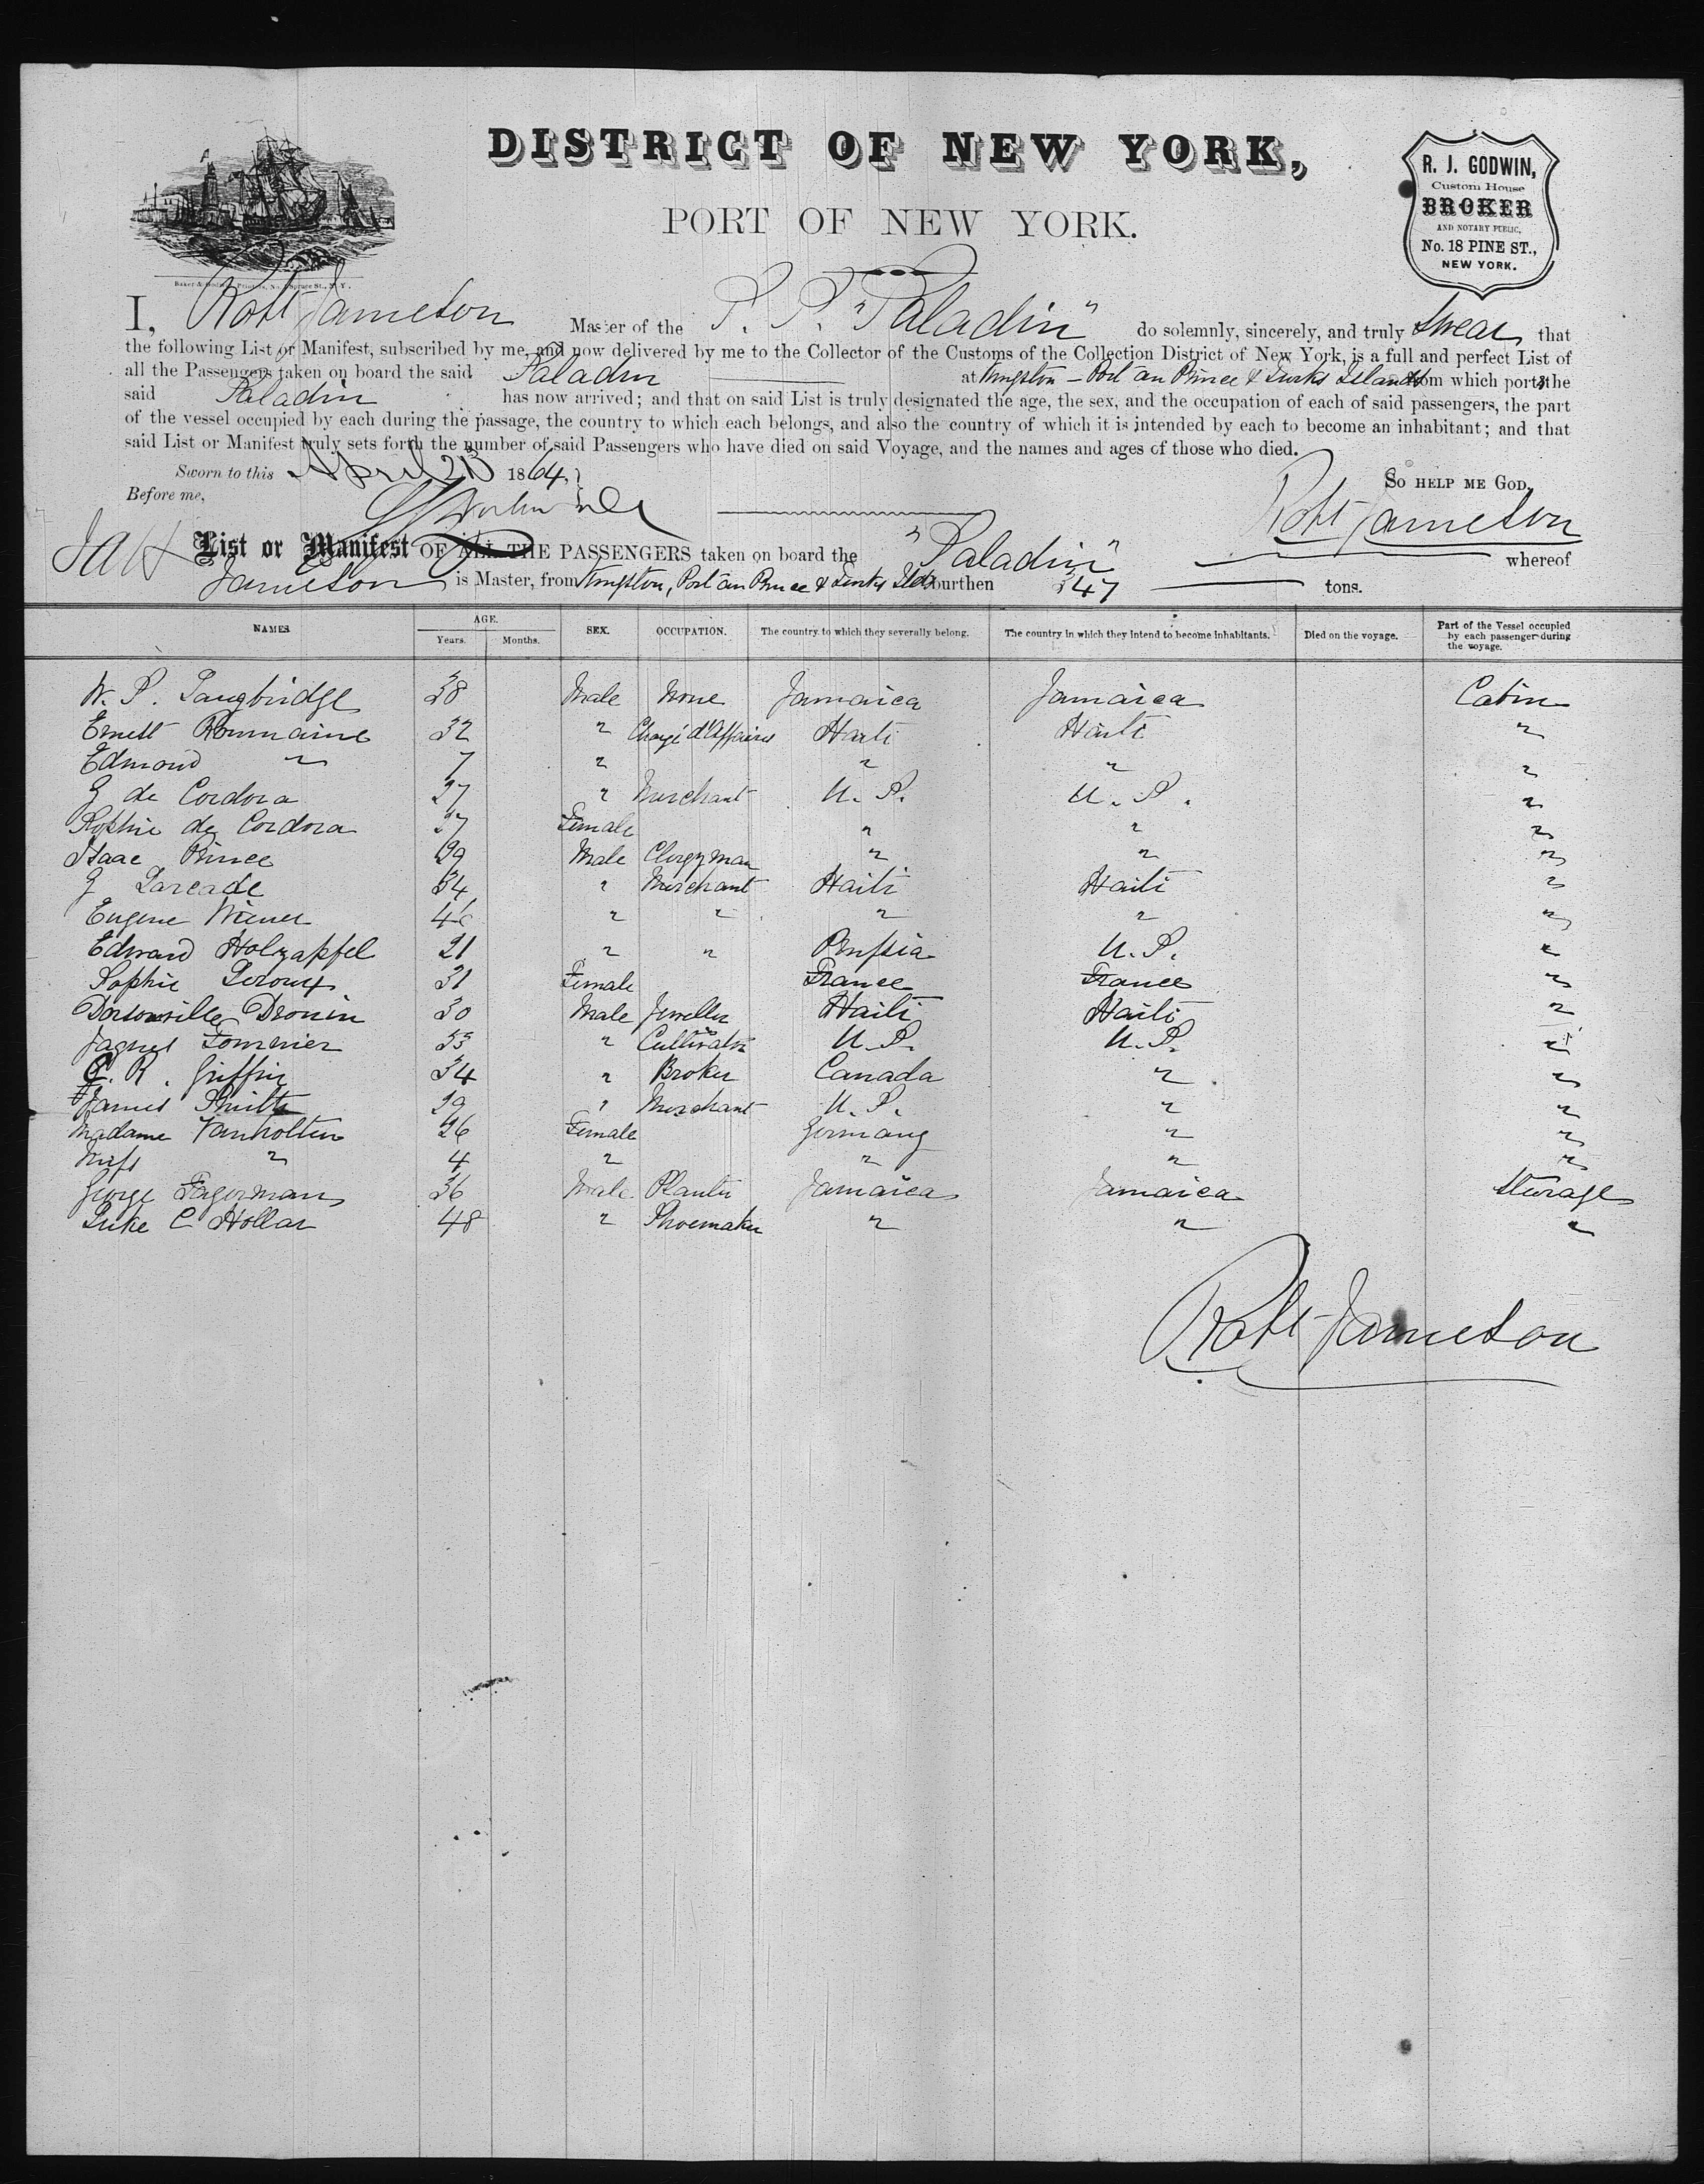 DISTRICT OF NEW YORK,
PORT OF NEW YORK.
R. J. GODWIN,
Custom House
BROKER
AND NOTARY PUBLIC,
No. 18 PINE ST.,
NEW YORK.
I, Robt Jameson Master of the S. S. "Paladin" do solemnly, sincerely, and truly swear that
the following List or Manifest, subscribed by me, and now delivered by me to the Collector of the Customs of the Collection District of New York, is a full and perfect List of
all the Passengers taken on board the said Paladin at Kingston - Port au Prince & Turks Islands from which ports the
said Paladin has now arrived; and that on said List is truly designated the age, the sex, and the occupation of each of said passengers, the part
of the vessel occupied by each during the passage, the country to which each belongs, and also the country of which it is intended by each to become an inhabitant; and that
said List or Manifest truly sets forth the number of said Passengers who have died on said Voyage, and the names and ages of those who died.
Sworn to this April 1864. SO HELP ME GOD.
Before me, Robt Jameson
List or Manifest OF ALL THE PASSENGERS taken on board the "Paladin" whereof
Jameson is Master, from Kingston, Port au Prince & Turks Ilds burthen 347 tons.
NAMES. AGE. Years. Months. SEX. OCCUPATION. The country to which they severally belong. The country in which they intend to become inhabitants. Died on the voyage. Part of the Vessel occupied by each passenger during the voyage.
W. P. 38 Male None Jamaica Jamaica Cabin
Ernest Roumaine 32 " Chargé d'Affaires Haiti Haiti "
Edmond " 7 " " " "
J de Cordova 27 " Merchant U. S. U. S. "
Sophie de Cordova 27 Female " " "
Isaac Prince 29 Male Clergyman " " "
J 34 " Merchant Haiti Haiti "
Eugene Wiener 46 " " " " "
Edward Holzapfel 21 " " Prussia U. S. "
Sophie Leroux 31 Female France France "
Drouin 30 Male Jeweller Haiti Haiti "
33 " Cultivator U. S. U. S. "
C. R. Griffin 34 " Broker Canada " "
James Smith 29 " Merchant U. S. " "
Madame Vanholten 26 Female Germany " "
Miss " 4 " " " "
George Fagerman 36 Male Planter Jamaica Jamaica Steerage
Luke C Hollar 48 " Shoemaker " " "
Robt Jameson